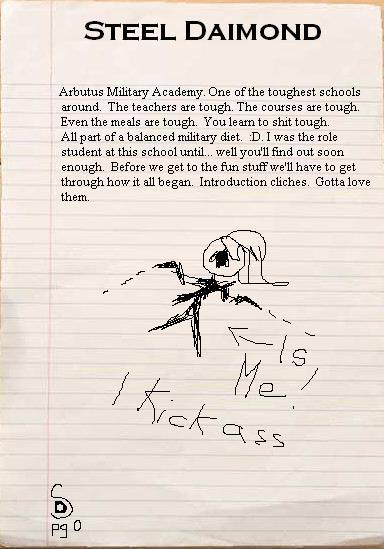 STEEL DAIMOND
Arbutus Military Academy. One of the toughest schools
around. The teachers are tough. The courses are tough.
Even the meals are tough. You learn to shit tough.
All part of a balanced military diet. :D. I was the role
student at this school until... well you'll find out soon
enough. Before we get to the fun stuff we'll have to get
through how it all began. Introduction cliches. Gotta love
them.
← Is
Me!
I Kick ass
SD
pg 0